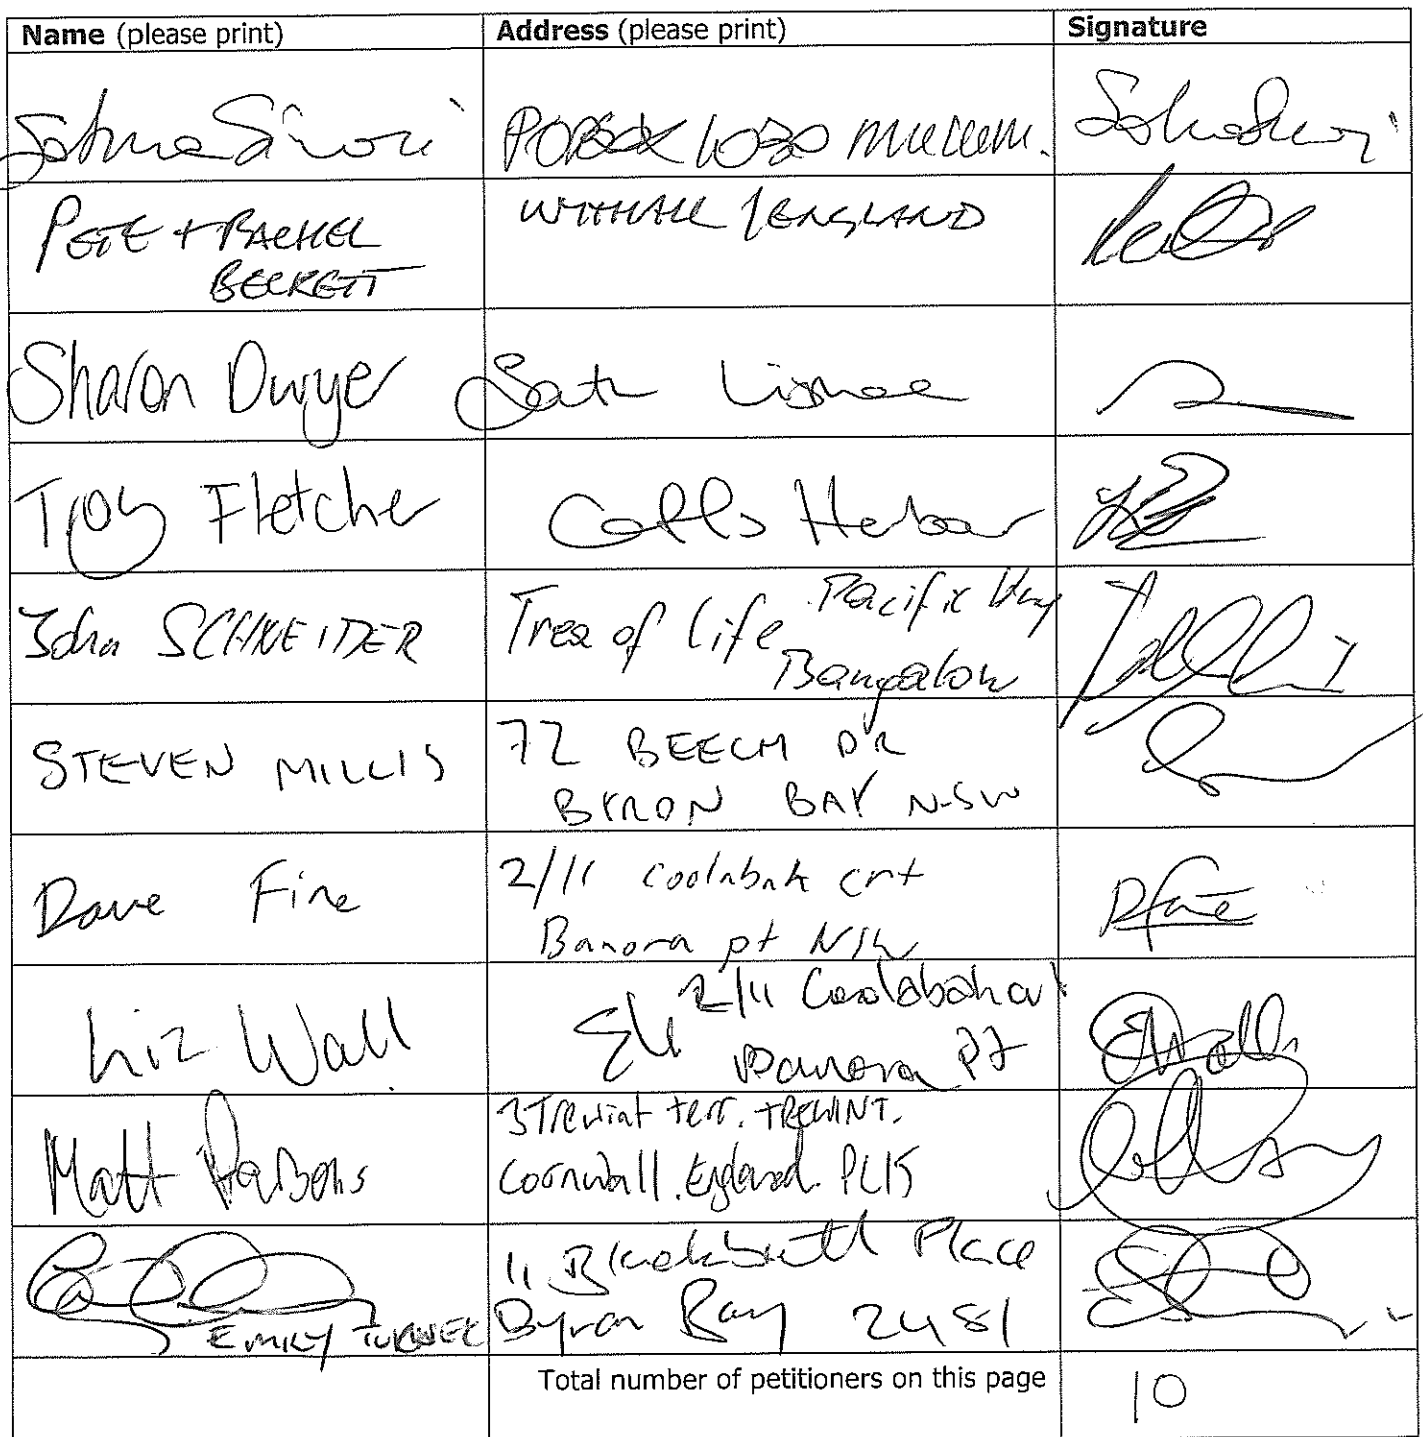 Name (please print) Address (please print) Signature
PO BOX 1030
PETE + RACHEL
BECKETT
ENGLAND
Sharon Dwyer Sath Lismore
Troy Fletcher Coffs Harbour
John SCHNEIDER Tree of life Pacific Hwy
Bangalow
STEVEN MILLIS 72 BEECH DR
BYRON BAY NSW
Dave Fine 2/11 coolabah crt
Banora pt NSW
Liz Wall 2/11 Coolabah crt
Banora Pt
Matt Parsons 3 Trewint terr. TREWINT.
Cornwall. England. PL15
11 Blackbutt Place
EMILY TURNER Byron Bay 2481
Total number of petitioners on this page 10